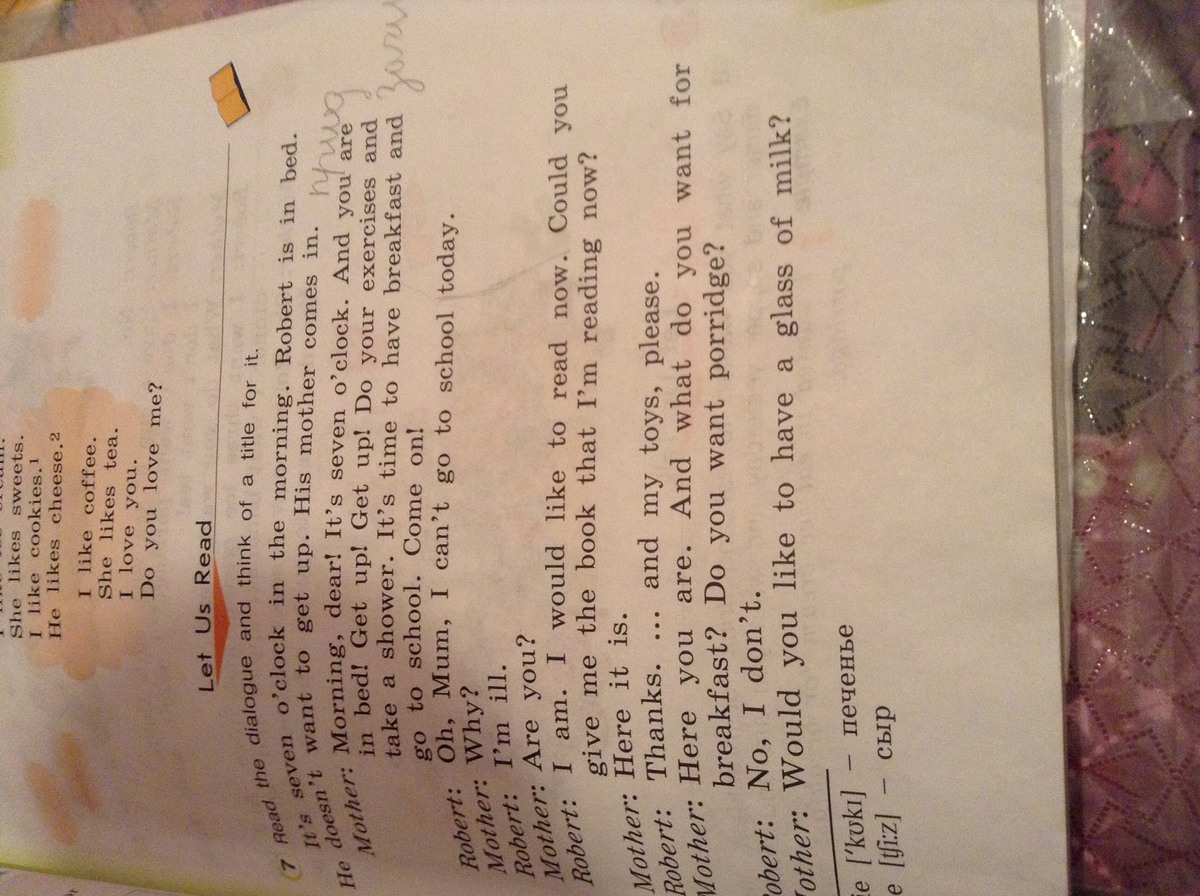 She likes sweets.
I like cookies.¹
He likes cheese.²
I like coffee.
She likes tea.
I love you.
Do you love me?
Let Us Read
7 Read the dialogue and think of a title for it.
It's seven o'clock in the morning. Robert is in bed.
He doesn't want to get up. His mother comes in.
Mother: Morning, dear! It's seven o'clock. And you are
in bed! Get up! Get up! Do your exercises and
take a shower. It's time to have breakfast and
go to school. Come on!
Robert: Oh, Mum, I can't go to school today.
Mother: Why?
Robert: I'm ill.
Mother: Are you?
Robert: I am. I would like to read now. Could you
give me the book that I'm reading now?
Mother: Here it is.
Robert: Thanks. ... and my toys, please.
Mother: Here you are. And what do you want for
breakfast? Do you want porridge?
obert: No, I don't.
other: Would you like to have a glass of milk?
ie [ˈkʊkɪ] – печенье
e [tʃi:z] – сыр